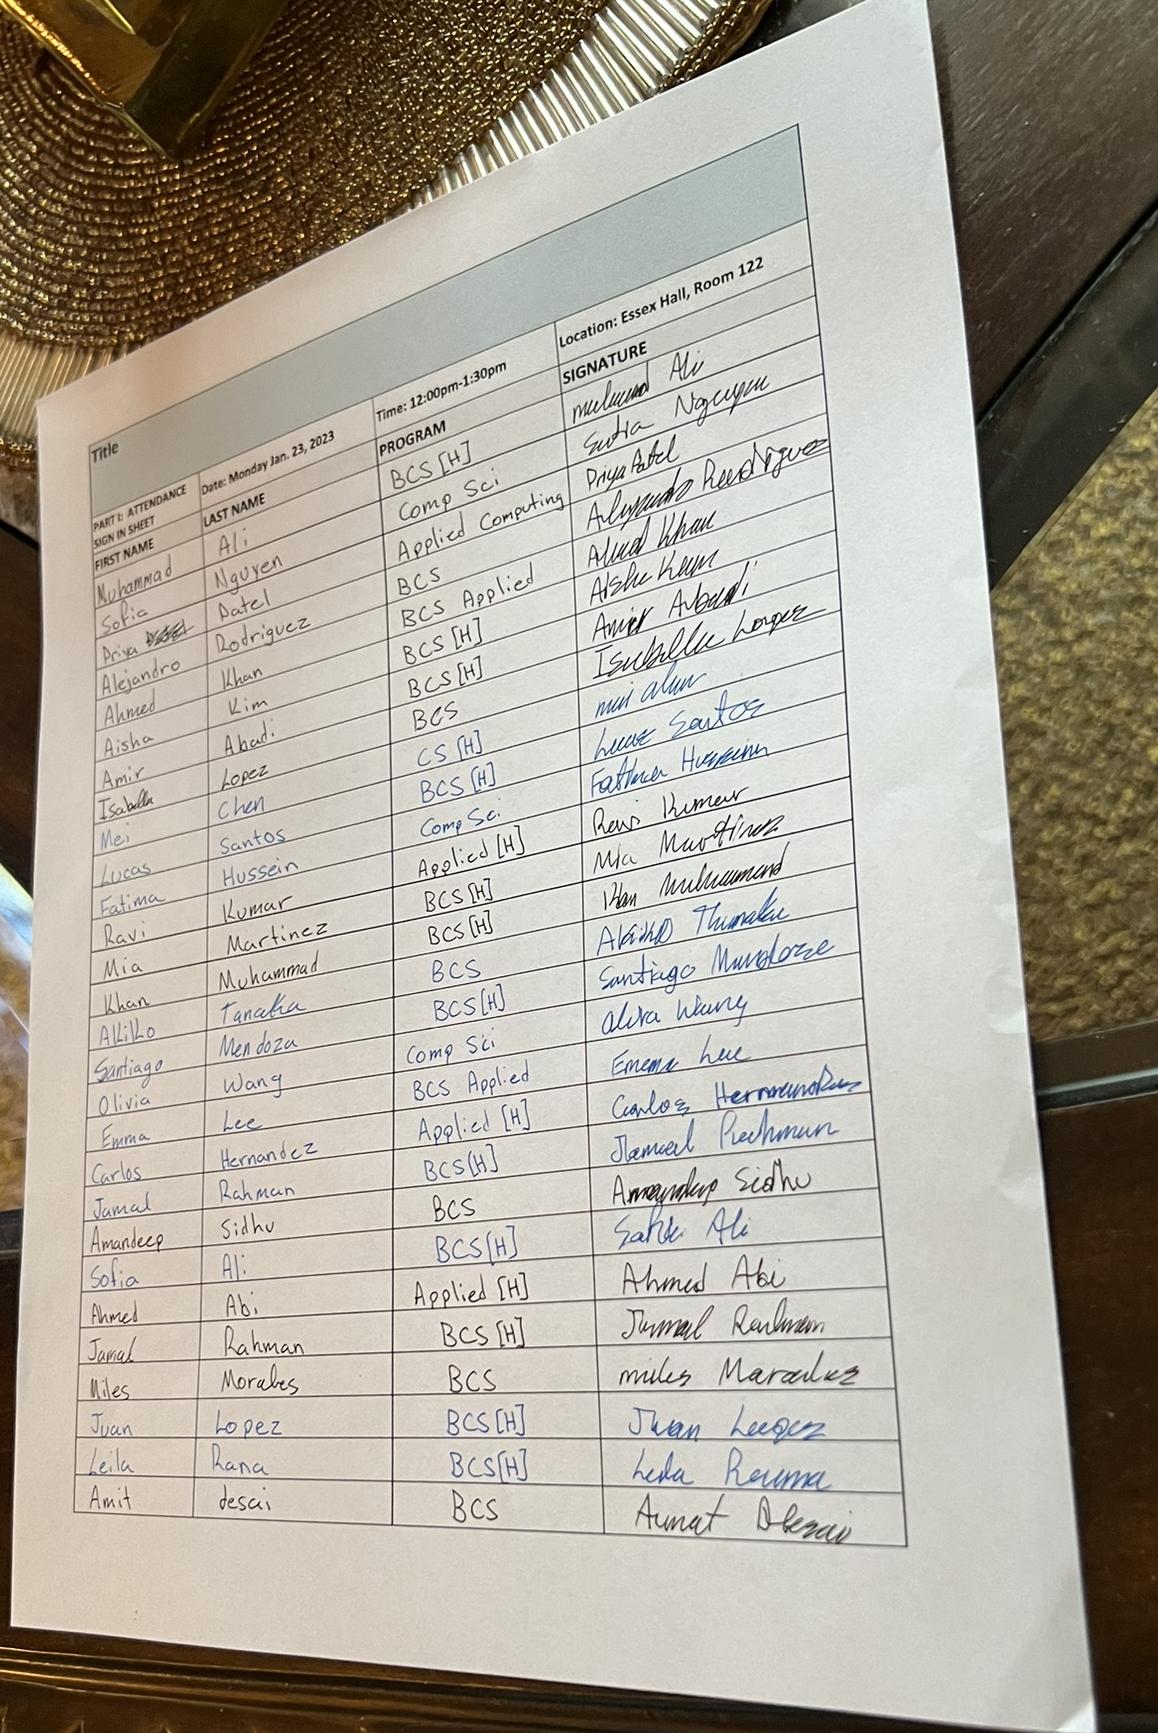 Title
PART I: ATTENDANCE SIGN IN SHEET Date: Monday Jan. 23, 2023 Time: 12:00pm-1:30pm Location: Essex Hall, Room 122
FIRST NAME LAST NAME PROGRAM SIGNATURE
Muhammad Ali BCS [H] Ali
Sofia Nguyen Comp Sci Nguyen
Priya Patel Applied Computing Priya Patel
Alejandro Rodriguez BCS Alejandro Rodriguez
Ahmed Khan BCS Applied Ahmed Khan
Aisha Kim BCS [H] Aisha
Amir Abadi BCS [H] Amir Abadi
Isabella Lopez BCS Isabella Lopez
Mei Chen CS [H] mei
Lucas Santos BCS [H] Lucas Santos
Fatima Hussein Comp Sci Fatima Hussein
Ravi Kumar Applied [H] Ravi Kumar
Mia Martinez BCS [H] Mia Martinez
Khan Muhammad BCS [H] Khan Muhammad
Akiko Tanaka BCS Akiko
Santiago Mendoza BCS [H] Santiago
Olivia Wang Comp Sci Wang
Emma Lee BCS Applied Emema Lee
Carlos Hernandez Applied [H] Carlos
Jamal Rahman BCS [H] Jamal Rahman
Amandeep Sidhu BCS Amandeep Sidhu
Sofia Ali BCS [H] Ali
Ahmed Abi Applied [H] Ahmed Abi
Jamal Rahman BCS [H] Jamal
Miles Morales BCS miles
Juan Lopez BCS [H] Juan
Leila Rana BCS [H]
Amit desai BCS